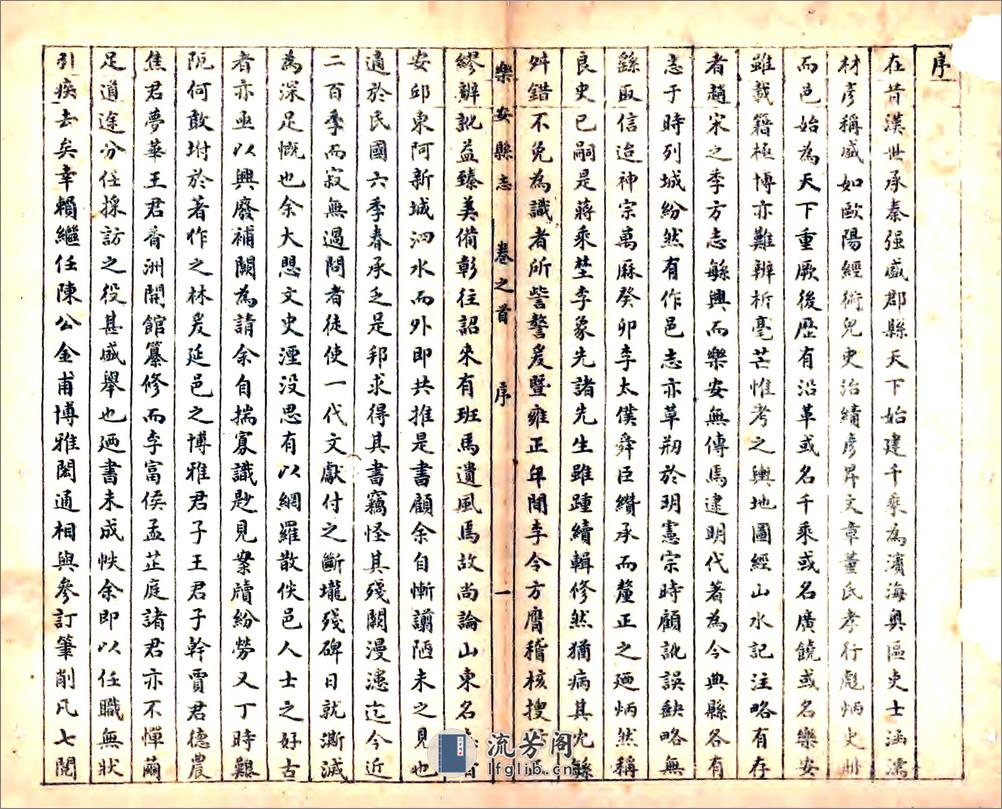 序
在昔漢世承秦强盛郡縣天下始建千乘為濱海奧區史士涵濡
材彥稱盛如歐陽經術兒史治績彥昇文章董氏孝行彪炳史冊
而邑始為天下重厥後歷有沿革或名千乘或名廣饒或名樂安
雖載籍極博亦難辨析毫芒惟考之輿地圖經山水記注略有存
者趙宋之季方志緐興而樂安無傳焉逮明代著為今典縣各有
志于時列城紛然有作邑志亦草刱於明憲宗時顧訛誤缺略無
繇㕝信迨神宗萬厤癸卯李太僕舜臣纘承而釐正之廼炳然稱
良史已嗣是蔣乘李象先諸先生雖踵續輯修然猶病其冗緐
舛錯不免為識者所訾謷爰暨雍正年間李令方膺稽核搜
樂安縣志 卷之首 序 一
繆辦訛益臻美備彰往詔來有班馬遺風焉故尚論山東名
安邱東阿新城泗水而外即共推是書顧余自慚謭陋未之見也
適於民國六季春承乏是邦求得其書竊怪其殘闕漫漶迄今近
二百季而寂無過問者徒使一代文獻付之斷壠殘碑日就澌滅
為深足慨也余大懼文史湮没思有以網羅散佚邑人士之好古
者亦亟以興廢補闕為請余自揣寡識尠見案牘紛勞又丁時艱
阨何敢坿於著作之林爰延邑之博雅君子王君子幹賈君德農
焦君夢華王君香洲開館纂修而李富侯孟芷庭諸君亦不憚繭
足道途分任採訪之役甚盛舉也廼書未成帙余即以任職無狀
引疾去矣幸賴繼任陳公金甫博雅閎通相與參訂筆削凡七閱
流芳閣
lfglib.cn